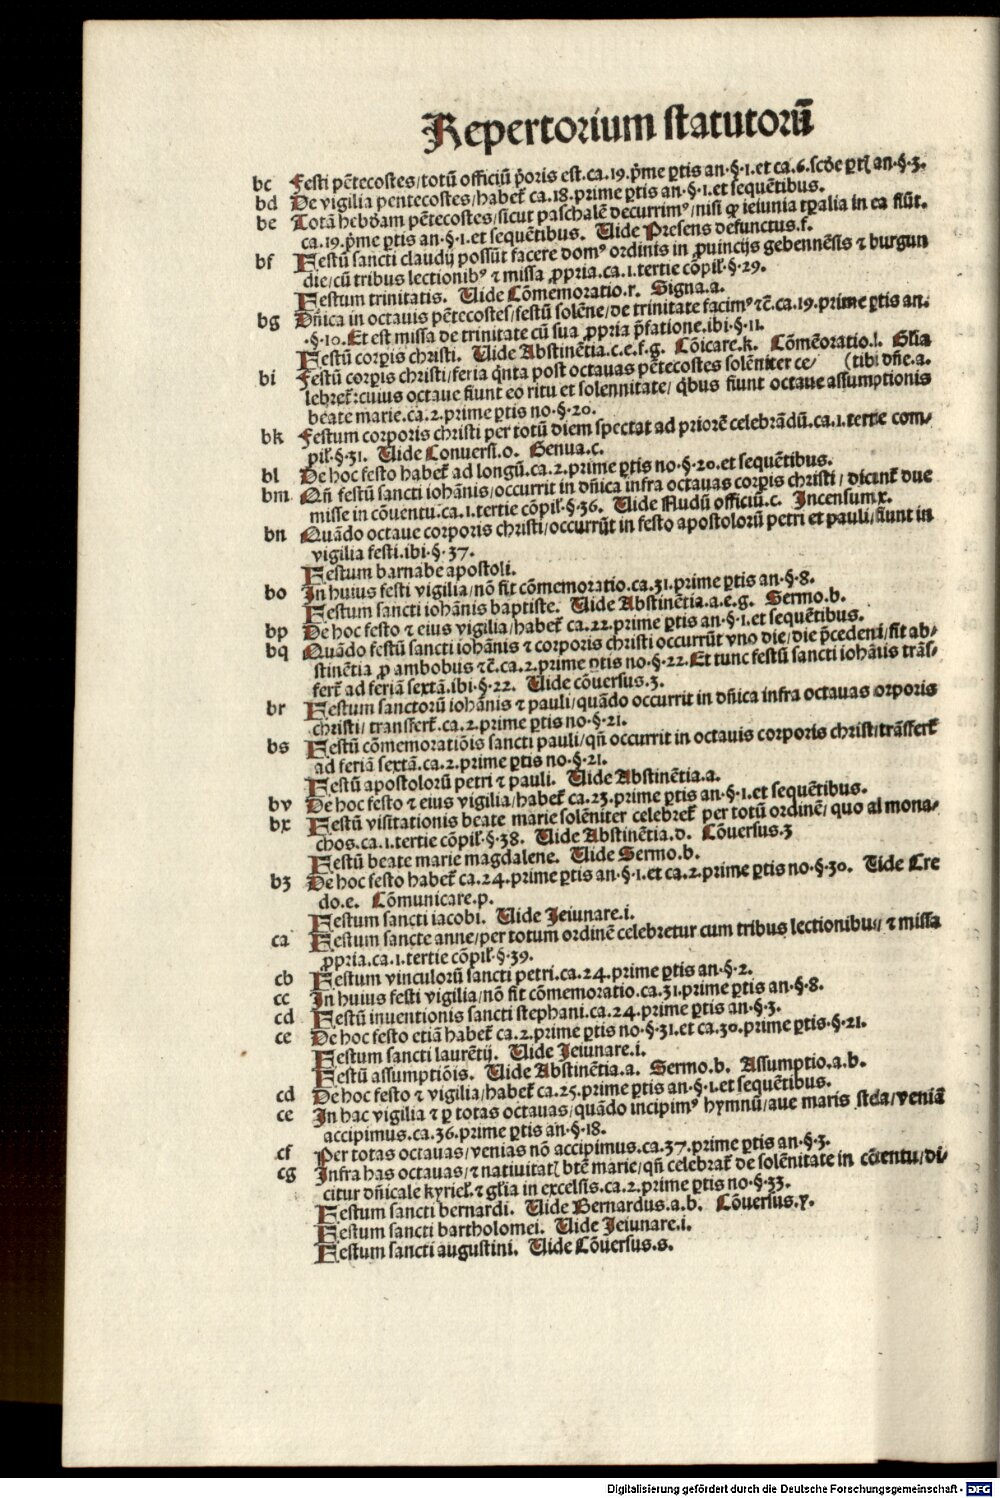 Repertorium statutorū
bc Festi pētecostes/totū officiū p̄oris est.ca.19.p̄me ꝑtis an.§.1.et ca.6.scd̄e ꝑtꝭ an.§.3.
bd De vigilia pentecostes/habet̄ ca.18.prime ꝑtis an.§.1.et sequētibus.
be Totā hebdam pētecostes/sicut paschalē decurrimꝰ/nisi ꝙ ieiunia tꝑalia in ea fiūt.
ca.19.p̄me ꝑtis an.§.1.et sequētibus. Uide Presens defunctus.f.
bf Festū sancti claudij possūt facere domꝰ ordinis in ꝓuincijs gebennēsis ⁊ burgun
die/cū tribus lectionibꝰ ⁊ missa ꝓpria.ca.1.tertie cōpil̄.§.29.
Festum trinitatis. Uide Cōmemoratio.r. Signa.a.
bg Dn̄ica in octauis pētecostes/festū solēne/de trinitate facimꝰ ⁊c̄.ca.19.prime ꝑtis an.
.§.10.Et est missa de trinitate cū sua ꝓpria p̄fatione.ibi.§.11.
Festū corꝑis christi. Uide Abstinētia.c.e.f.g. Cōicare.k. Cōmēoratio.l. Gl̄ia
bi Festū corꝑis christi/feria q̄nta post octauas pētecostes solēniter ce/ (tibi dn̄e.a.
lebret̄:cuius octaue fiunt eo ritu et solennitate/ q̄bus fiunt octaue assumptionis
beate marie.ca.2.prime ꝑtis no.§.20.
bk Festum corporis christi per totū diem spectat ad priorē celebrādū.ca.1.tertie com/
pil̄.§.31. Uide Conuersi.o. Genua.c.
bl De hoc festo habet̄ ad longū.ca.2.prime ꝑtis no.§.20.et sequētibus.
bm Qn̄ festū sancti iohānis/occurrit in dn̄ica infra octauas corꝑis christi/ dicūt̄ due
misse in cōuentu.ca.1.tertie cōpil̄.§.36. Uide Nudū officiū.c. Incensum.x.
bn Quādo octaue corporis christi/occurrūt in festo apostolorū petri et pauli/fiunt in
vigilia festi.ibi.§.37.
Festum barnabe apostoli.
bo In huius festi vigilia/nō fit cōmemoratio.ca.31.prime ꝑtis an.§.8.
Festum sancti iohānis baptiste. Uide Abstinētia.a.e.g. Sermo.b.
bp De hoc festo ⁊ eius vigilia/habet̄ ca.22.prime ꝑtis an.§.1.et sequētibus.
bq Quādo festū sancti iohānis ⁊ corporis christi occurrūt vno die/die p̄cedenti/fit ab/
stinētia ꝓ ambobus ⁊c̄.ca.2.prime ꝑtis no.§.22.Et tunc festū sancti iohānis trās/
fert̄ ad feriā sextā.ibi.§.22. Uide cōuersus.3.
br Festum sanctorū iohānis ⁊ pauli/quādo occurrit in dn̄ica infra octauas orporis
christi/ transfert̄.ca.2.prime ꝑtis no.§.21.
bs Festū cōmemoratiōis sancti pauli/qn̄ occurrit in octauis corporis christi/trāsfert̄
ad feriā sextā.ca.2.prime ꝑtis no.§.21.
Festū apostolorū petri ⁊ pauli. Uide Abstinētia.a.
bv De hoc festo ⁊ eius vigilia/habet̄ ca.23.prime ꝑtis an.§.1.et sequētibus.
bx Festū visitationis beate marie solēniter celebret̄ per totū ordinē/ quo al mona/
chos.ca.1.tertie cōpil̄.§.38. Uide Abstinētia.d. Cōuersus.3
Festū beate marie magdalene. Uide Sermo.b.
bz De hoc festo habet̄ ca.24.prime ꝑtis an.§.1.et ca.2.prime ꝑtis no.§.30. Uide Cre
do.e. Cōmunicare.p.
Festum sancti iacobi. Uide Ieiunare.i.
ca Festum sancte anne/per totum ordinē celebretur cum tribus lectionibus/ ⁊ missa
ꝓpria.ca.1.tertie cōpil̄.§.39.
cb Festum vinculorū sancti petri.ca.24.prime ꝑtis an.§.2.
cc In huius festi vigilia/nō fit cōmemoratio.ca.31.prime ꝑtis an.§.8.
cd Festū inuentionis sancti stephani.ca.24.prime ꝑtis an.§.3.
ce De hoc festo etiā habet̄ ca.2.prime ꝑtis no.§.31.et ca.30.prime ꝑtis.§.21.
Festum sancti laurētij. Uide Ieiunare.i.
Festū assumptiōis. Uide Abstinētia.a. Sermo.b. Assumptio.a.b.
cd De hoc festo ⁊ vigilia/habet̄ ca.25.prime ꝑtis an.§.1.et sequētibus.
ce In hac vigilia ⁊ ꝑ totas octauas/quādo incipimꝰ hymnū/aue maris stela/veniā
accipimus.ca.36.prime ꝑtis an.§.18.
cf Per totas octauas/venias nō accipimus.ca.37.prime ꝑtis an.§.3.
cg Infra has octauas/⁊ natiuitatꝭ btē marie/qn̄ celebrat̄ de solēnitate in cōuentu/di/
citur dn̄icale kyriel̄.⁊ gl̄ia in excelsis.ca.2.prime ꝑtis no.§.33.
Festum sancti bernardi. Uide Bernardus.a.b. Cōuersus.y.
Festum sancti bartholomei. Uide Ieiunare.i.
Festum sancti augustini. Uide Cōuersus.s.
Digitalisierung gefördert durch die Deutsche Forschungsgemeinschaft - DFG